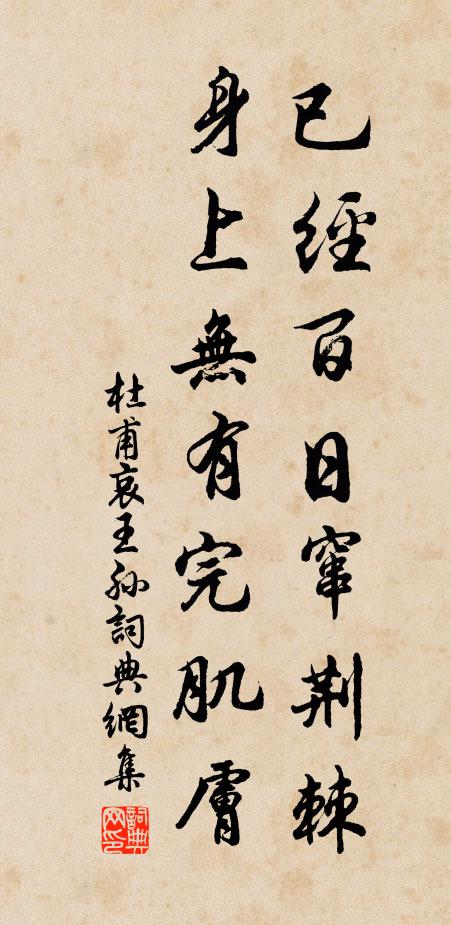 已經百日窜荆棘
身上無有完肌膚
杜甫哀王孙詞典網集
詞典网印